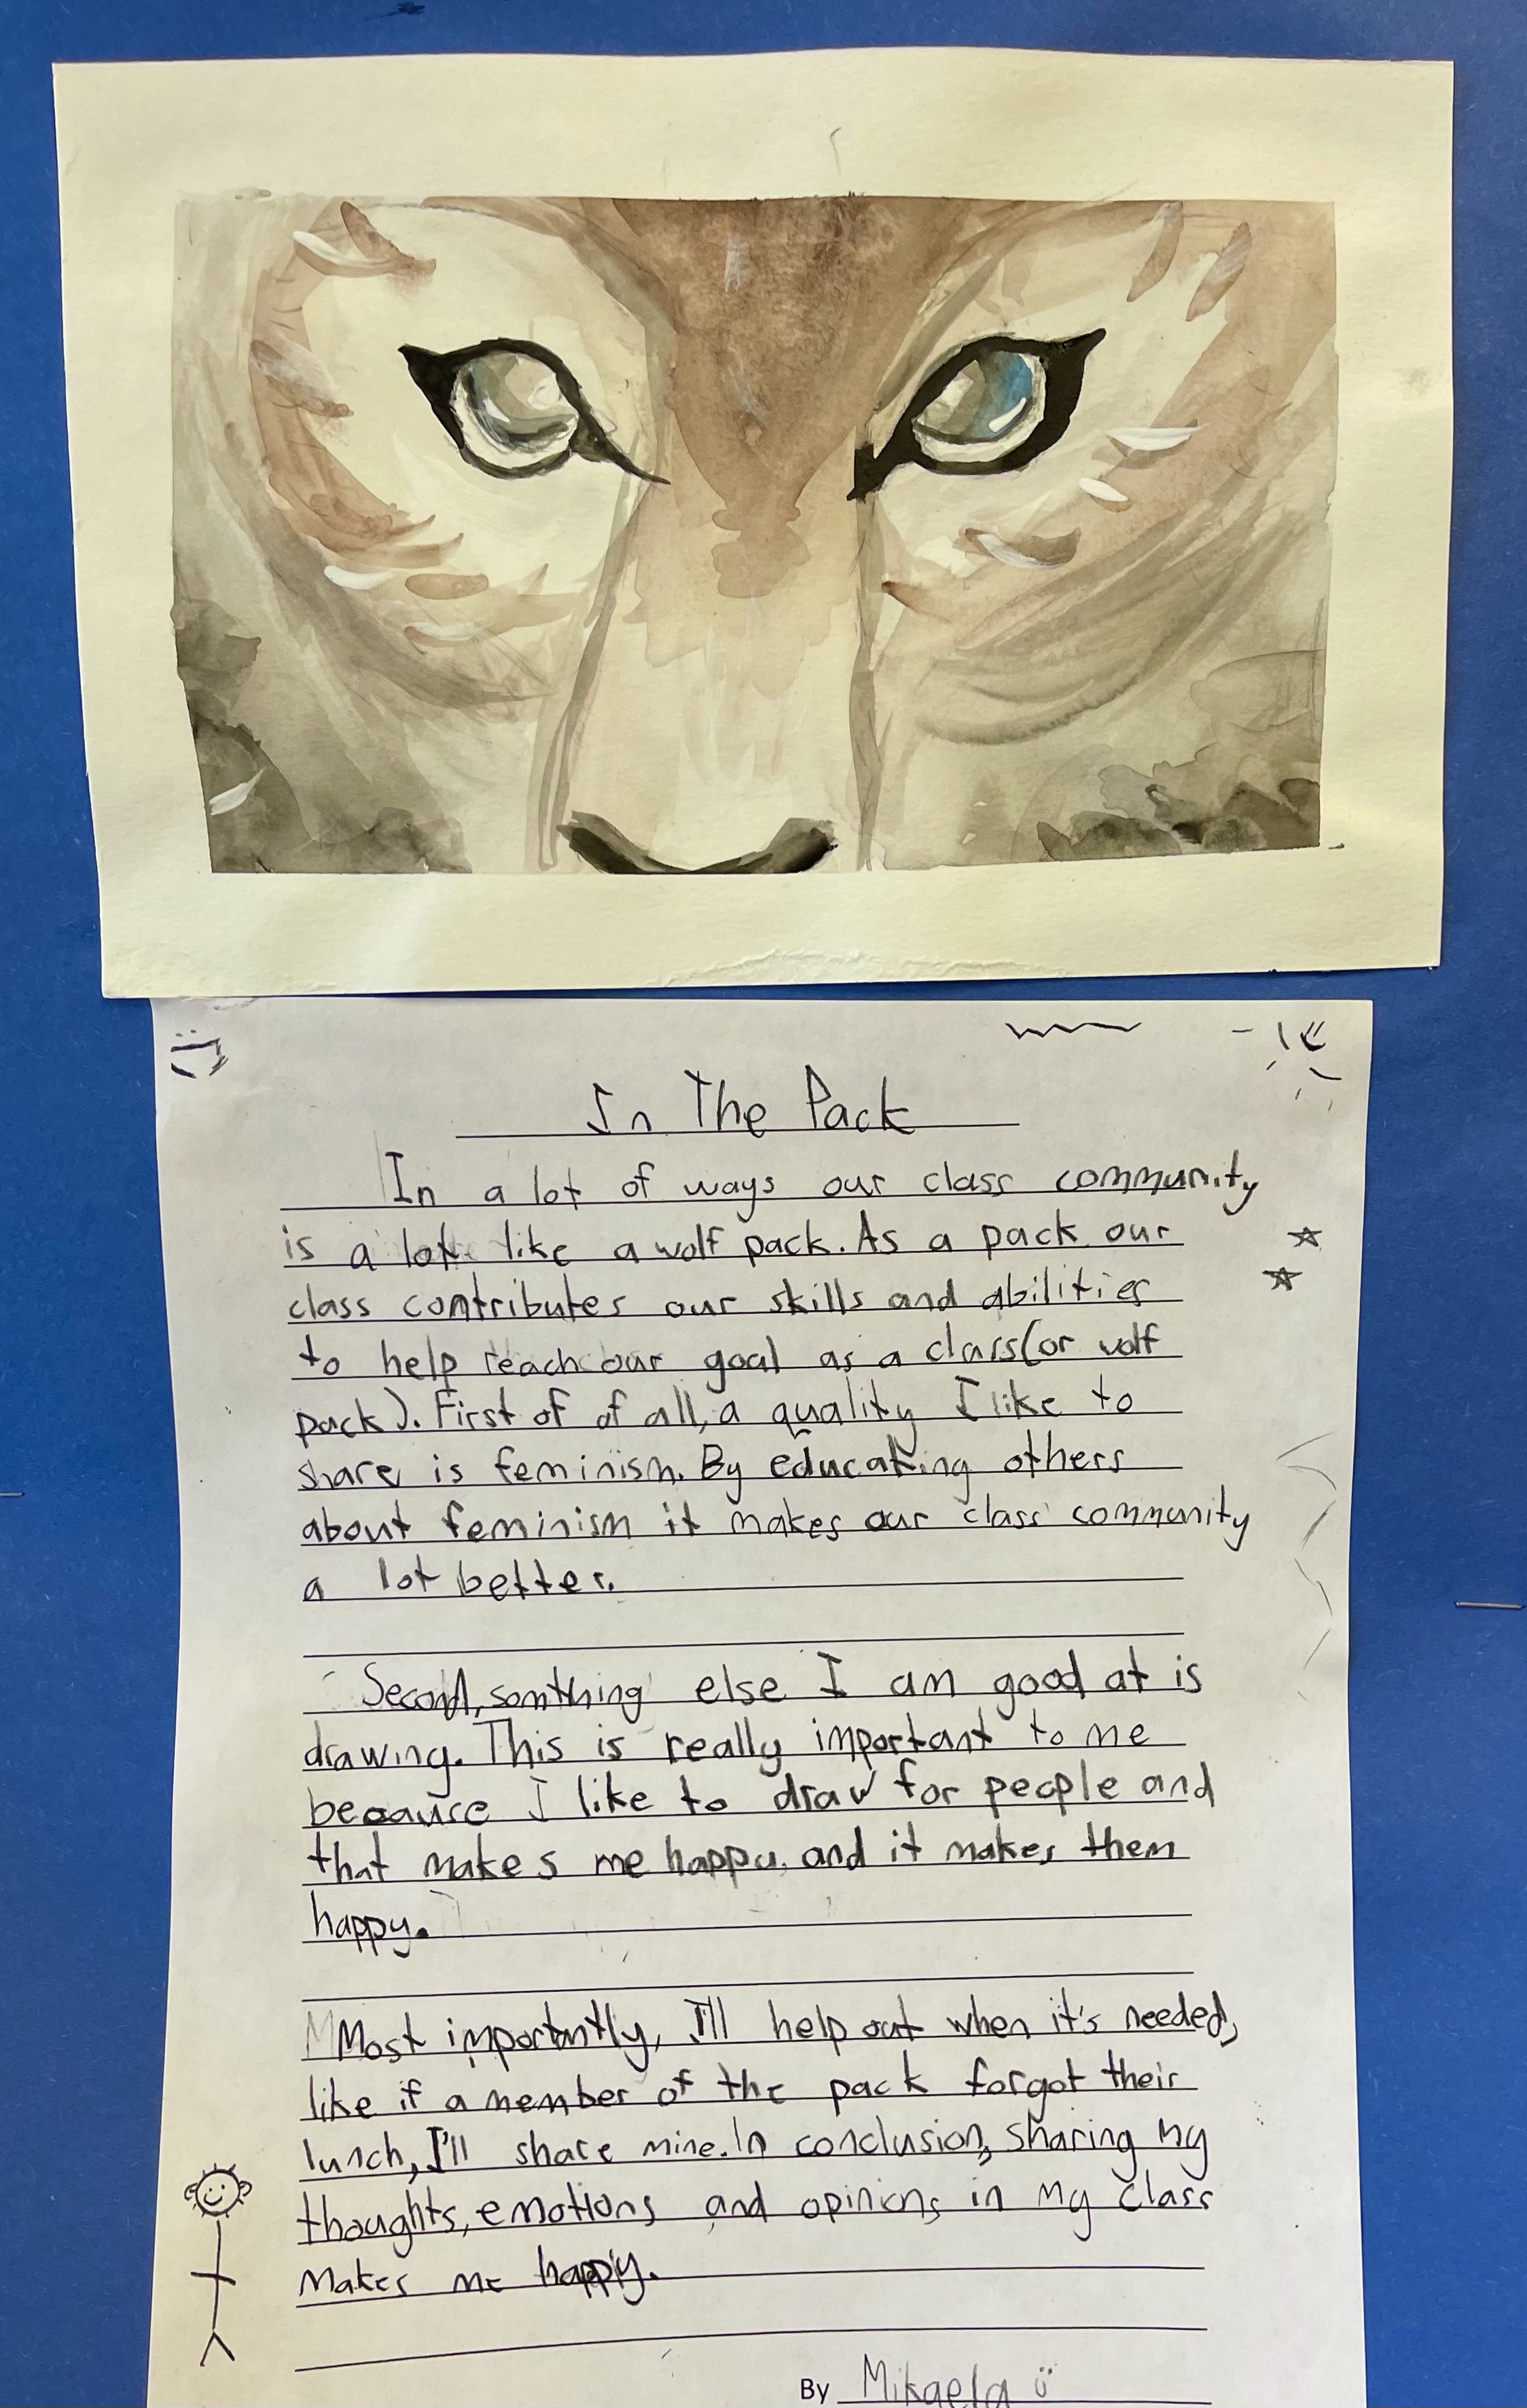 In The Pack
In a lot of ways our class community
is a lot like a wolf pack. As a pack our
class contributes our skills and abilities
to help reach our goal as a class(or wolf
pack). First of of all, a quality I like to
share is feminism. By educating others
about feminism it makes our class community
a lot better.
Second, somthing else I am good at is
drawing. This is really important to me
because I like to draw for people and
that makes me happy, and it makes them
happy.
Most importantly, I'll help out when it's needed,
like if a member of the pack forgot their
lunch, I'll share mine. In conclusion, sharing my
thoughts, emotions and opinions in my class
makes me happy.
By Mikaela